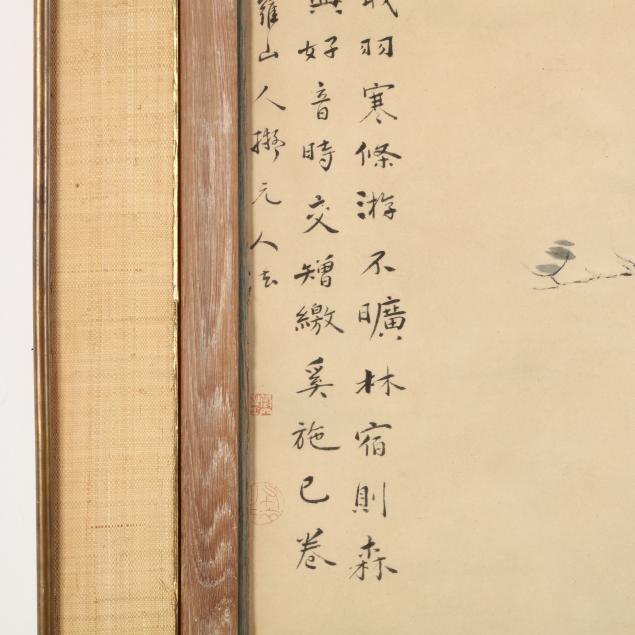 羽寒條游不曠林宿則森
好音時交矰繳奚施已卷
山人擬元人法